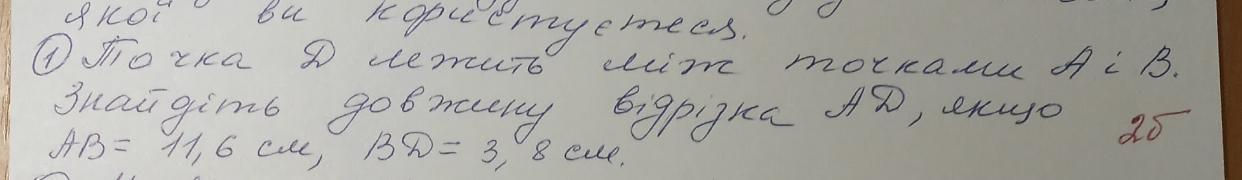 якої ви користуєтеся.
① Точка D лежить між точками A і B.
Знайдіть довжину відрізка AD, якщо
AB = 11,6 см, BD = 3,8 см.
2б